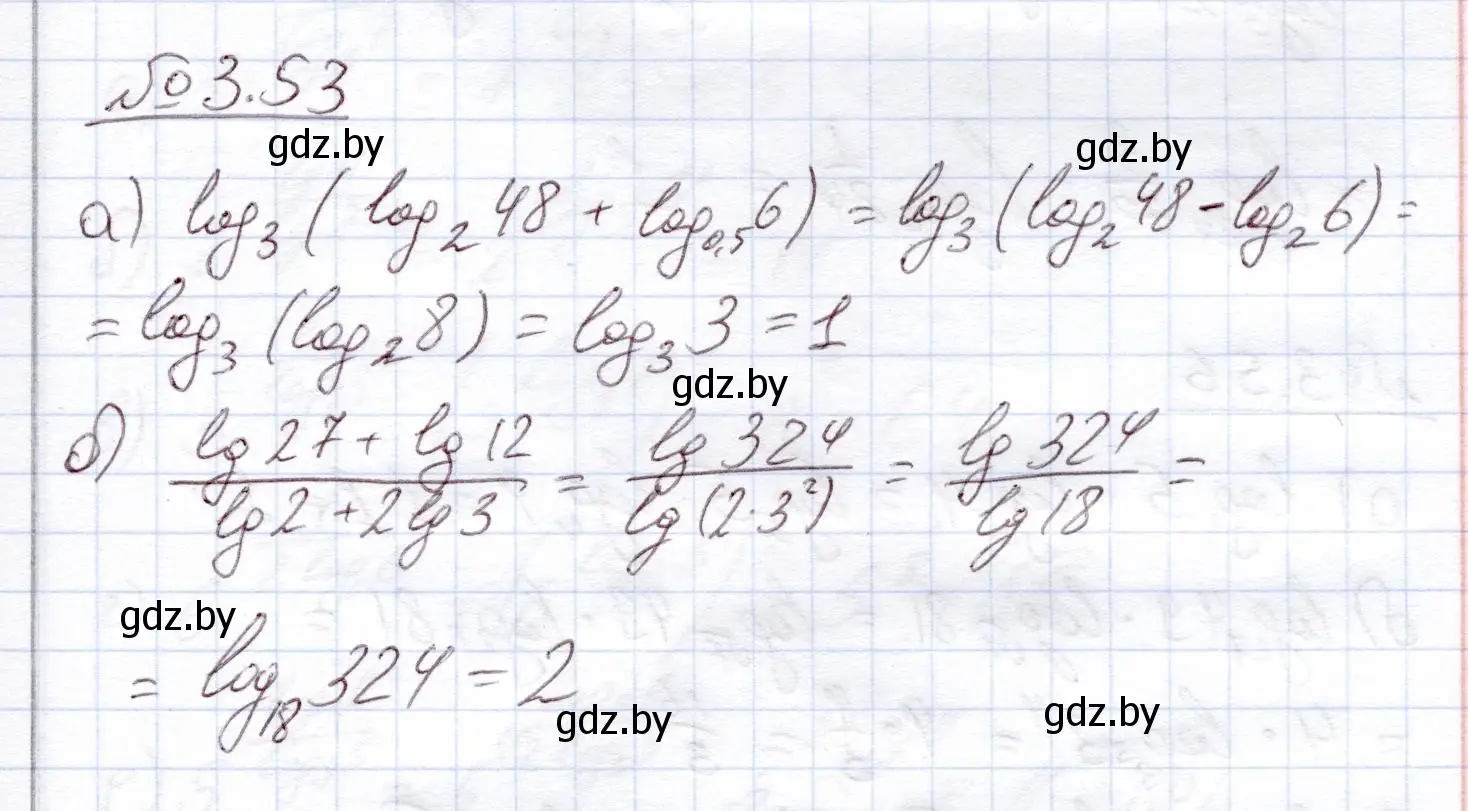 № 3.53
gdz.by gdz.by
а) log₃(log₂48 + log₀,₅6) = log₃(log₂48 - log₂6) =
= log₃(log₂8) = log₃3 = 1
gdz.by
б) (lg 27 + lg 12)/(lg 2 + 2 lg 3) = (lg 324)/(lg(2·3²)) = (lg 324)/(lg 18) =
gdz.by
= log₁₈324 = 2
gdz.by gdz.by